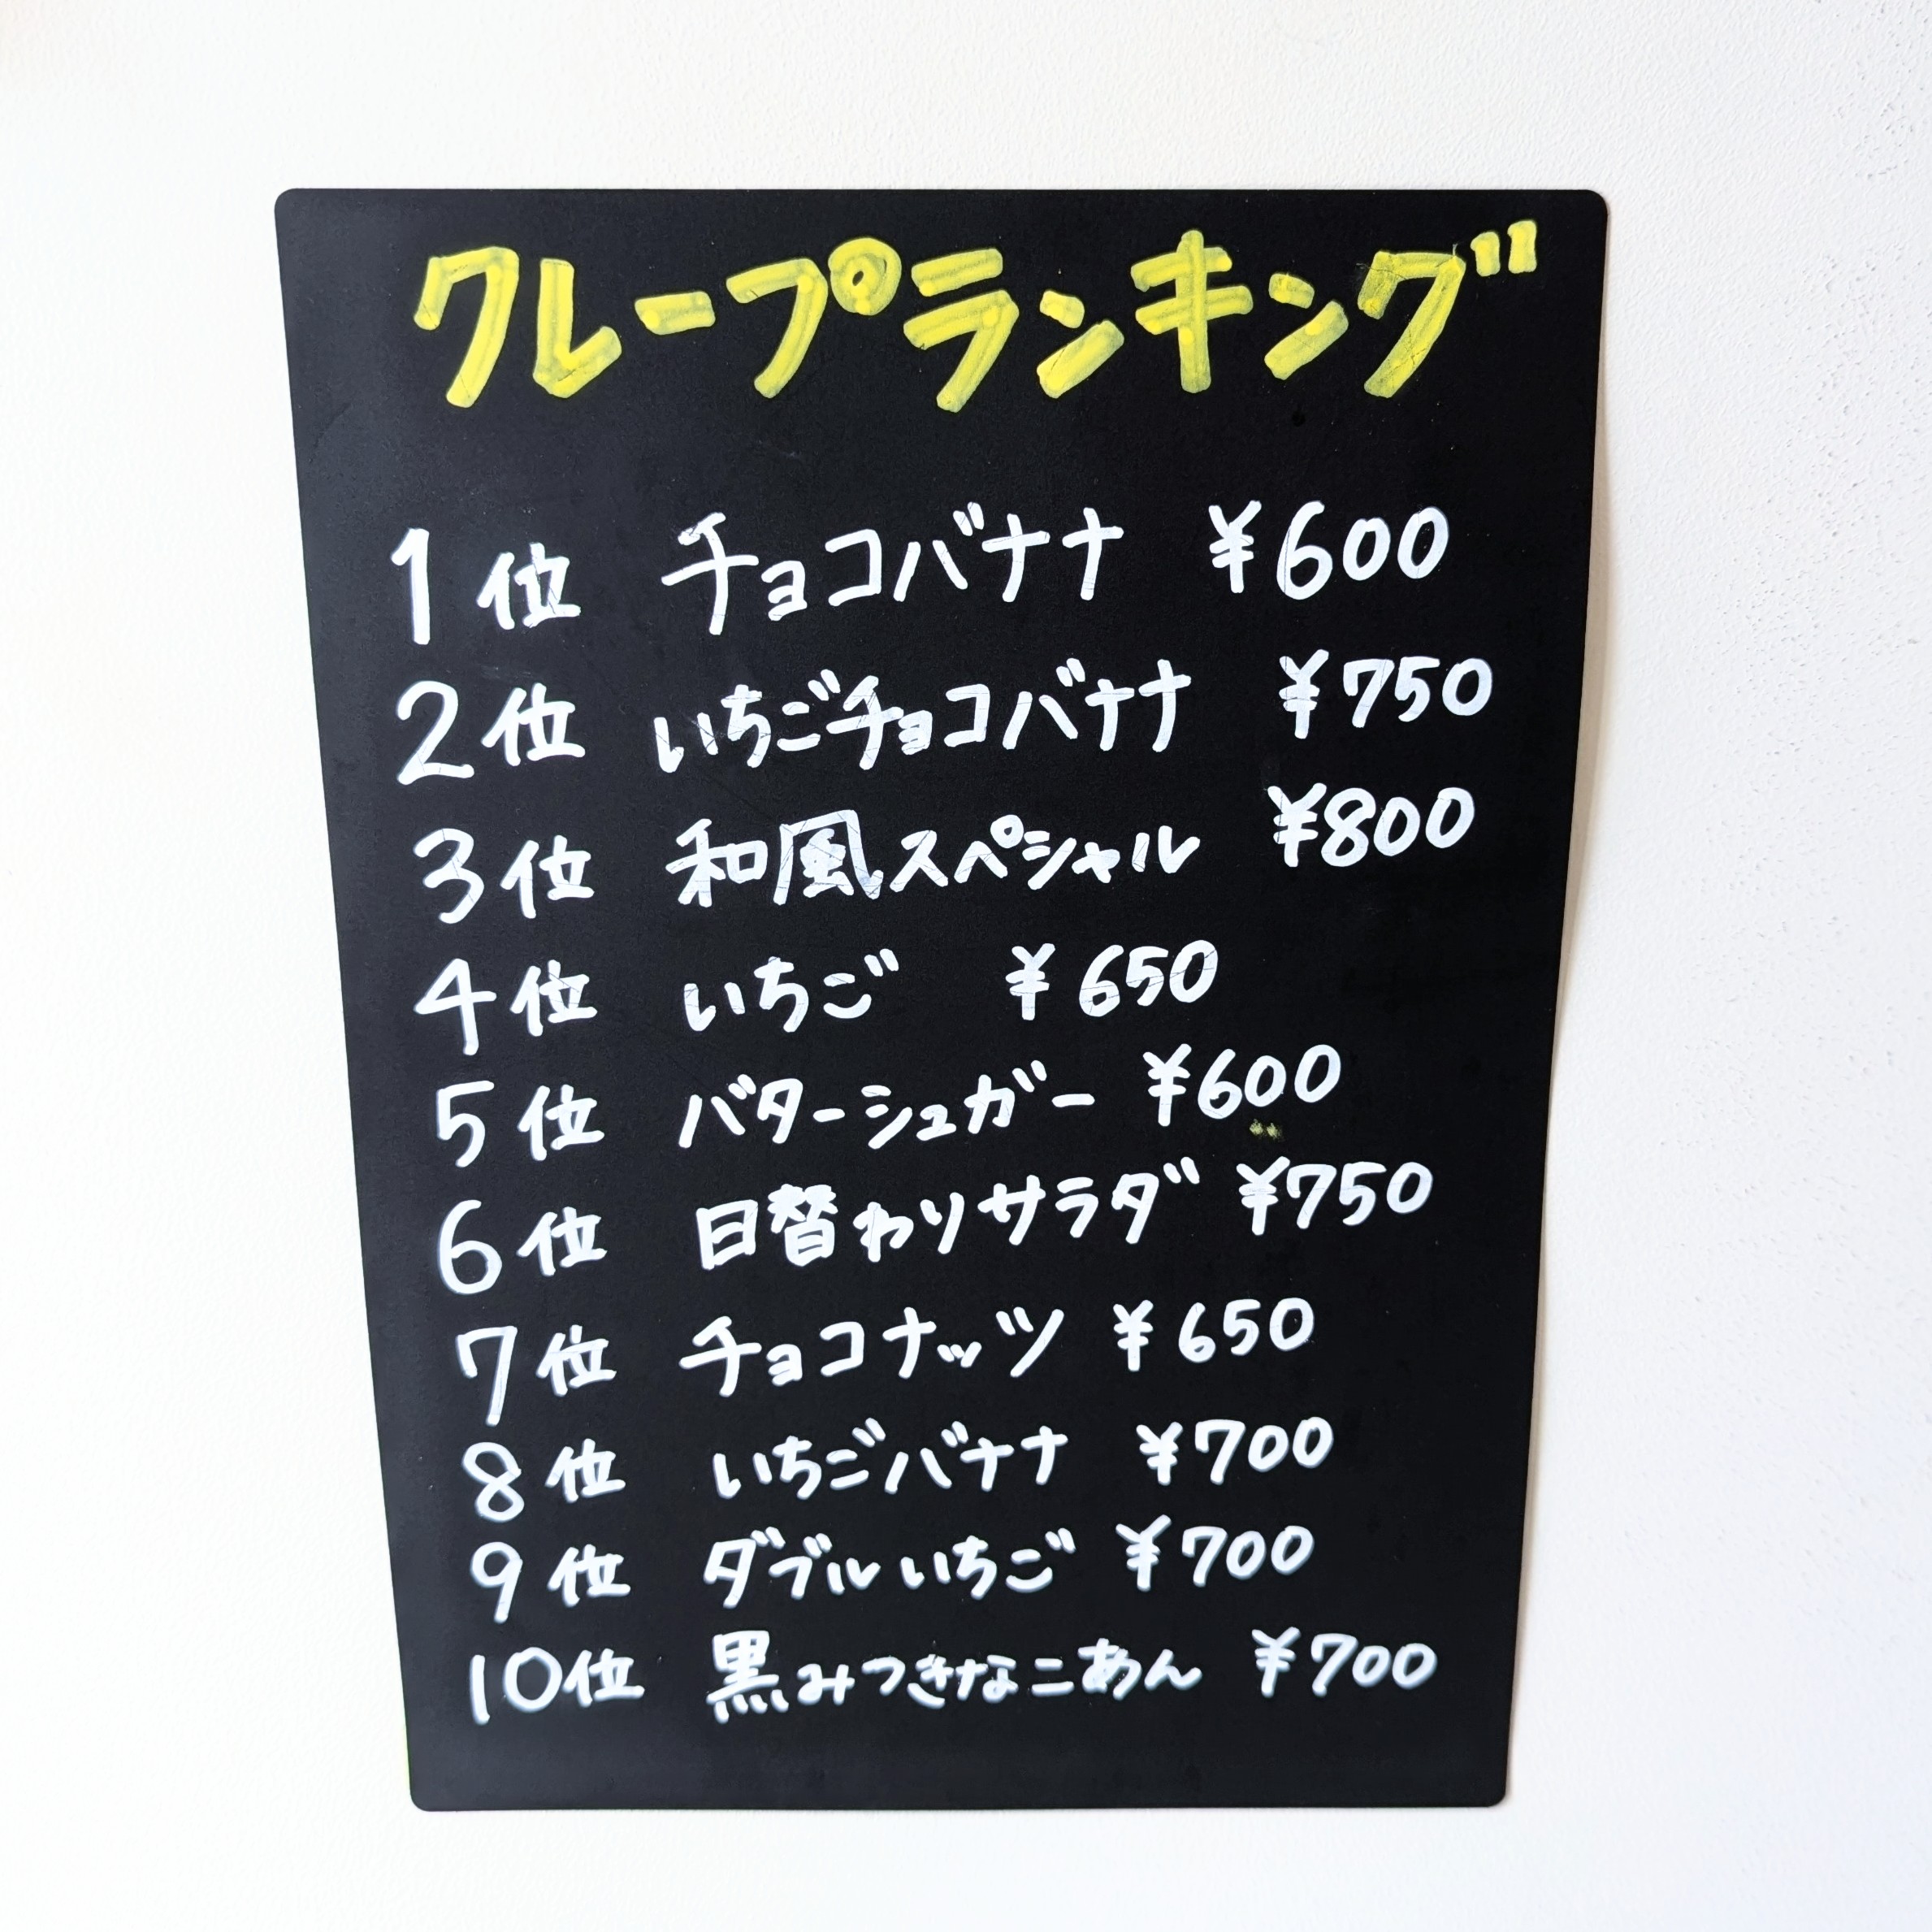 クレープランキング
1位 チョコバナナ ¥600
2位 いちごチョコバナナ ¥750
3位 和風スペシャル ¥800
4位 いちご ¥650
5位 バターシュガー ¥600
6位 日替わりサラダ ¥750
7位 チョコナッツ ¥650
8位 いちごバナナ ¥700
9位 ダブルいちご ¥700
10位 黒みつきなこあん ¥700